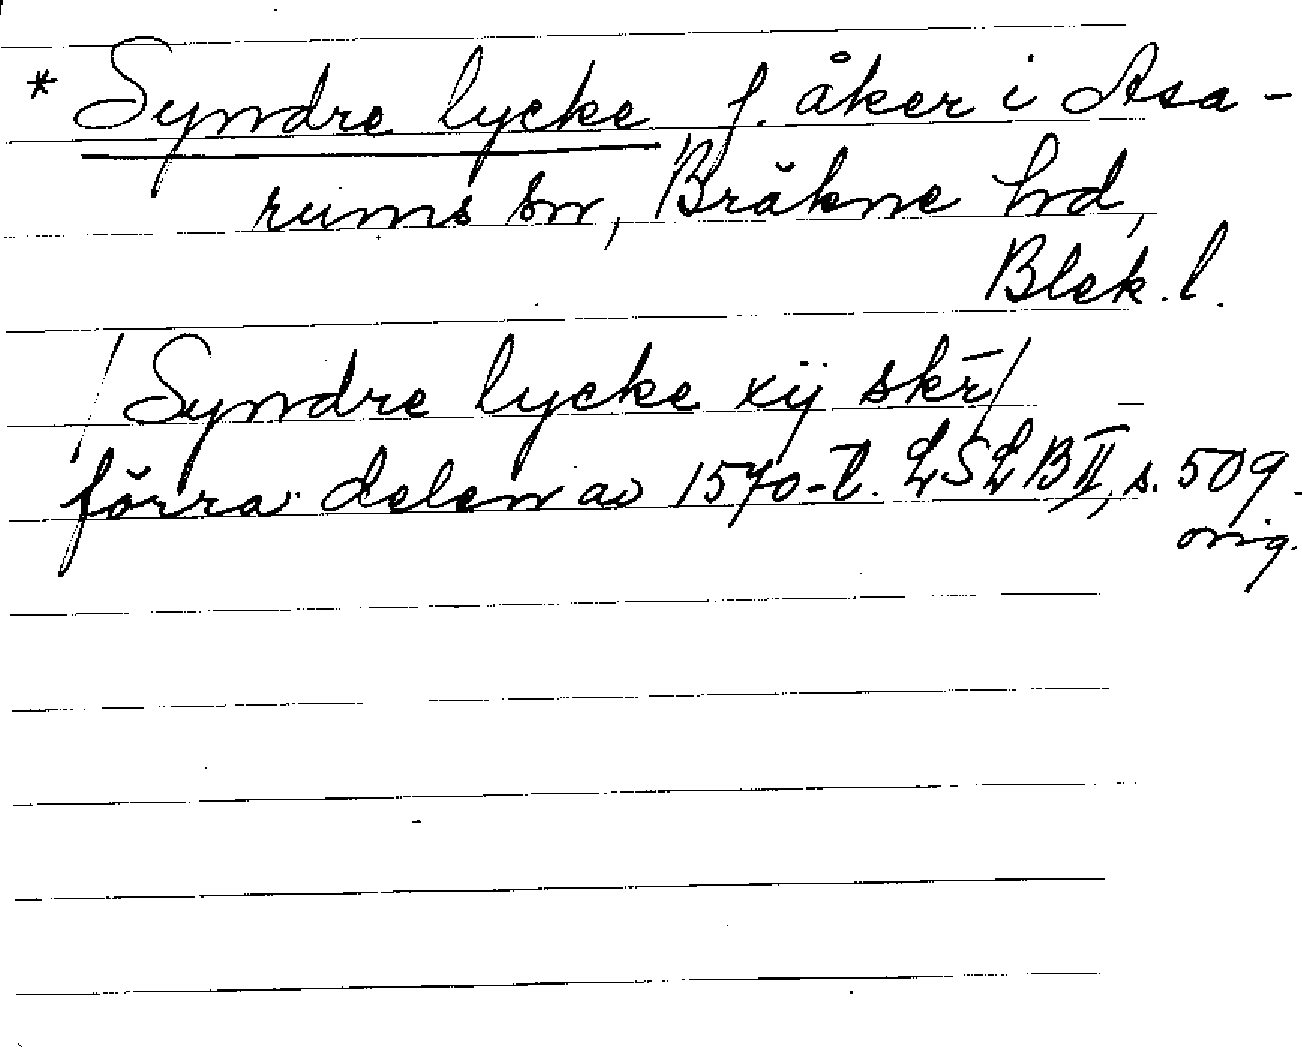 * Syndre lycke f. åker i Asa-
rums sn, Bräkne hd,
Blek. l.
/Syndre lycke xij skr̄/
förra delen av 1570-t. LSLB II, s. 509.
orig.